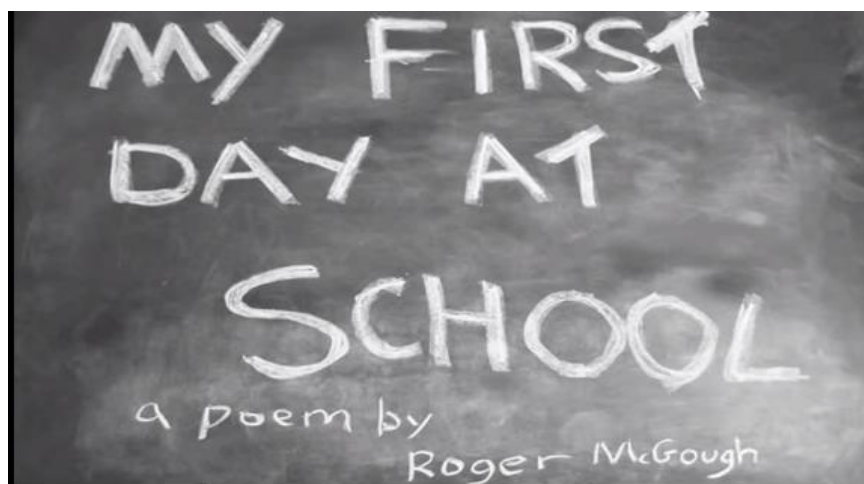 MY FIRST
DAY AT
SCHOOL
a poem by
Roger McGough